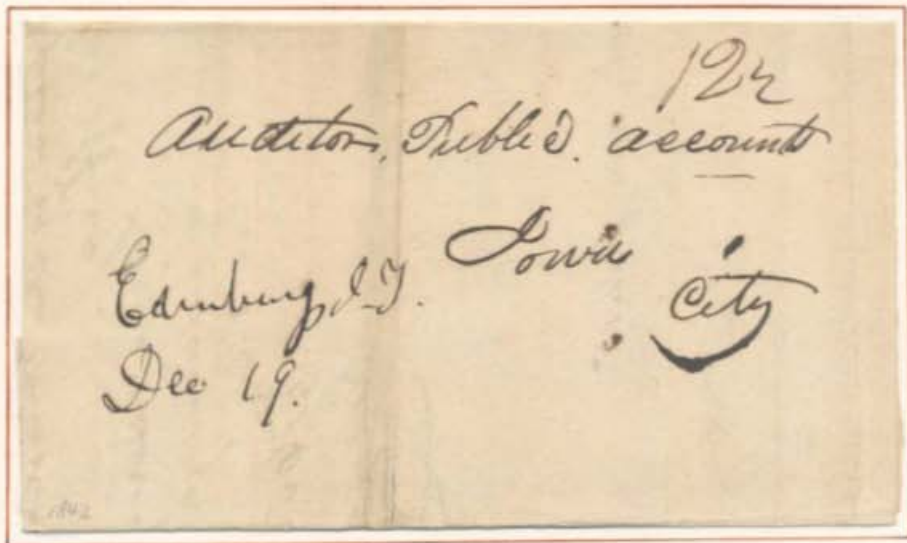 12½
Auditor, Public. accounts
Iowa
City
Edinburg I.T.
Dec 19.
1842